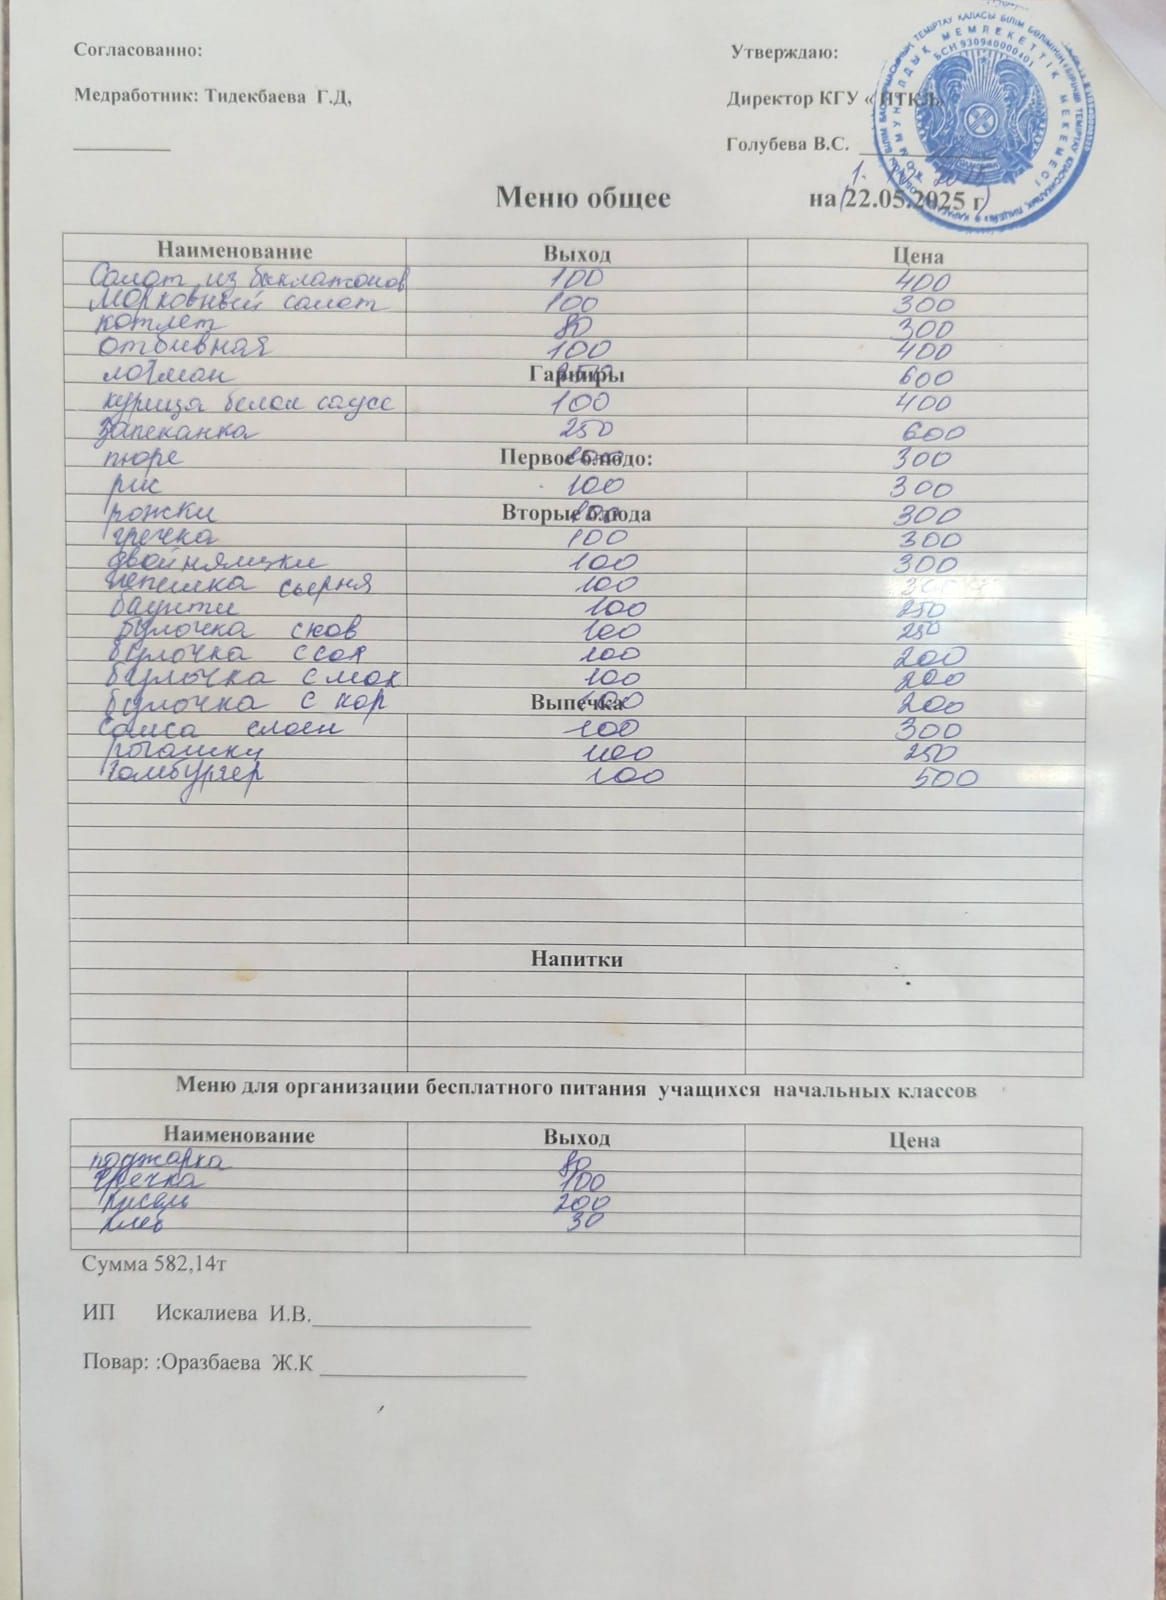 Согласованно: Утверждаю:
Медработник: Тидекбаева Г.Д, Директор КГУ « ПТКЛ»
Голубева В.С.
БСН 930940000401
Меню общее на 22.05.2025 г
Наименование Выход Цена
Салат из баклажанов 100 400
Морковный салат 100 300
котлет 80 300
отбивная 100 400
лагман Гарниры 600
курица белом соусе 100 400
Запеканка 250 600
пюре Первое блюдо: 300
рис 100 300
рожки Вторые блюда 300
гречка 100 300
двойняшки 100 300
лепешка сырня 100
баунти 100 250
булочка 100 250
булочка 100 200
булочка с мак 100 200
булочка с кор Выпечка 100 200
Самса слоен 100 300
рогалики 100 250
Гамбургер 100 500
Напитки
Меню для организации бесплатного питания учащихся начальных классов
Наименование Выход Цена
поджарка 80
гречка 100
кисель 200
хлеб 30
Сумма 582,14т
ИП Искалиева И.В.
Повар: :Оразбаева Ж.К